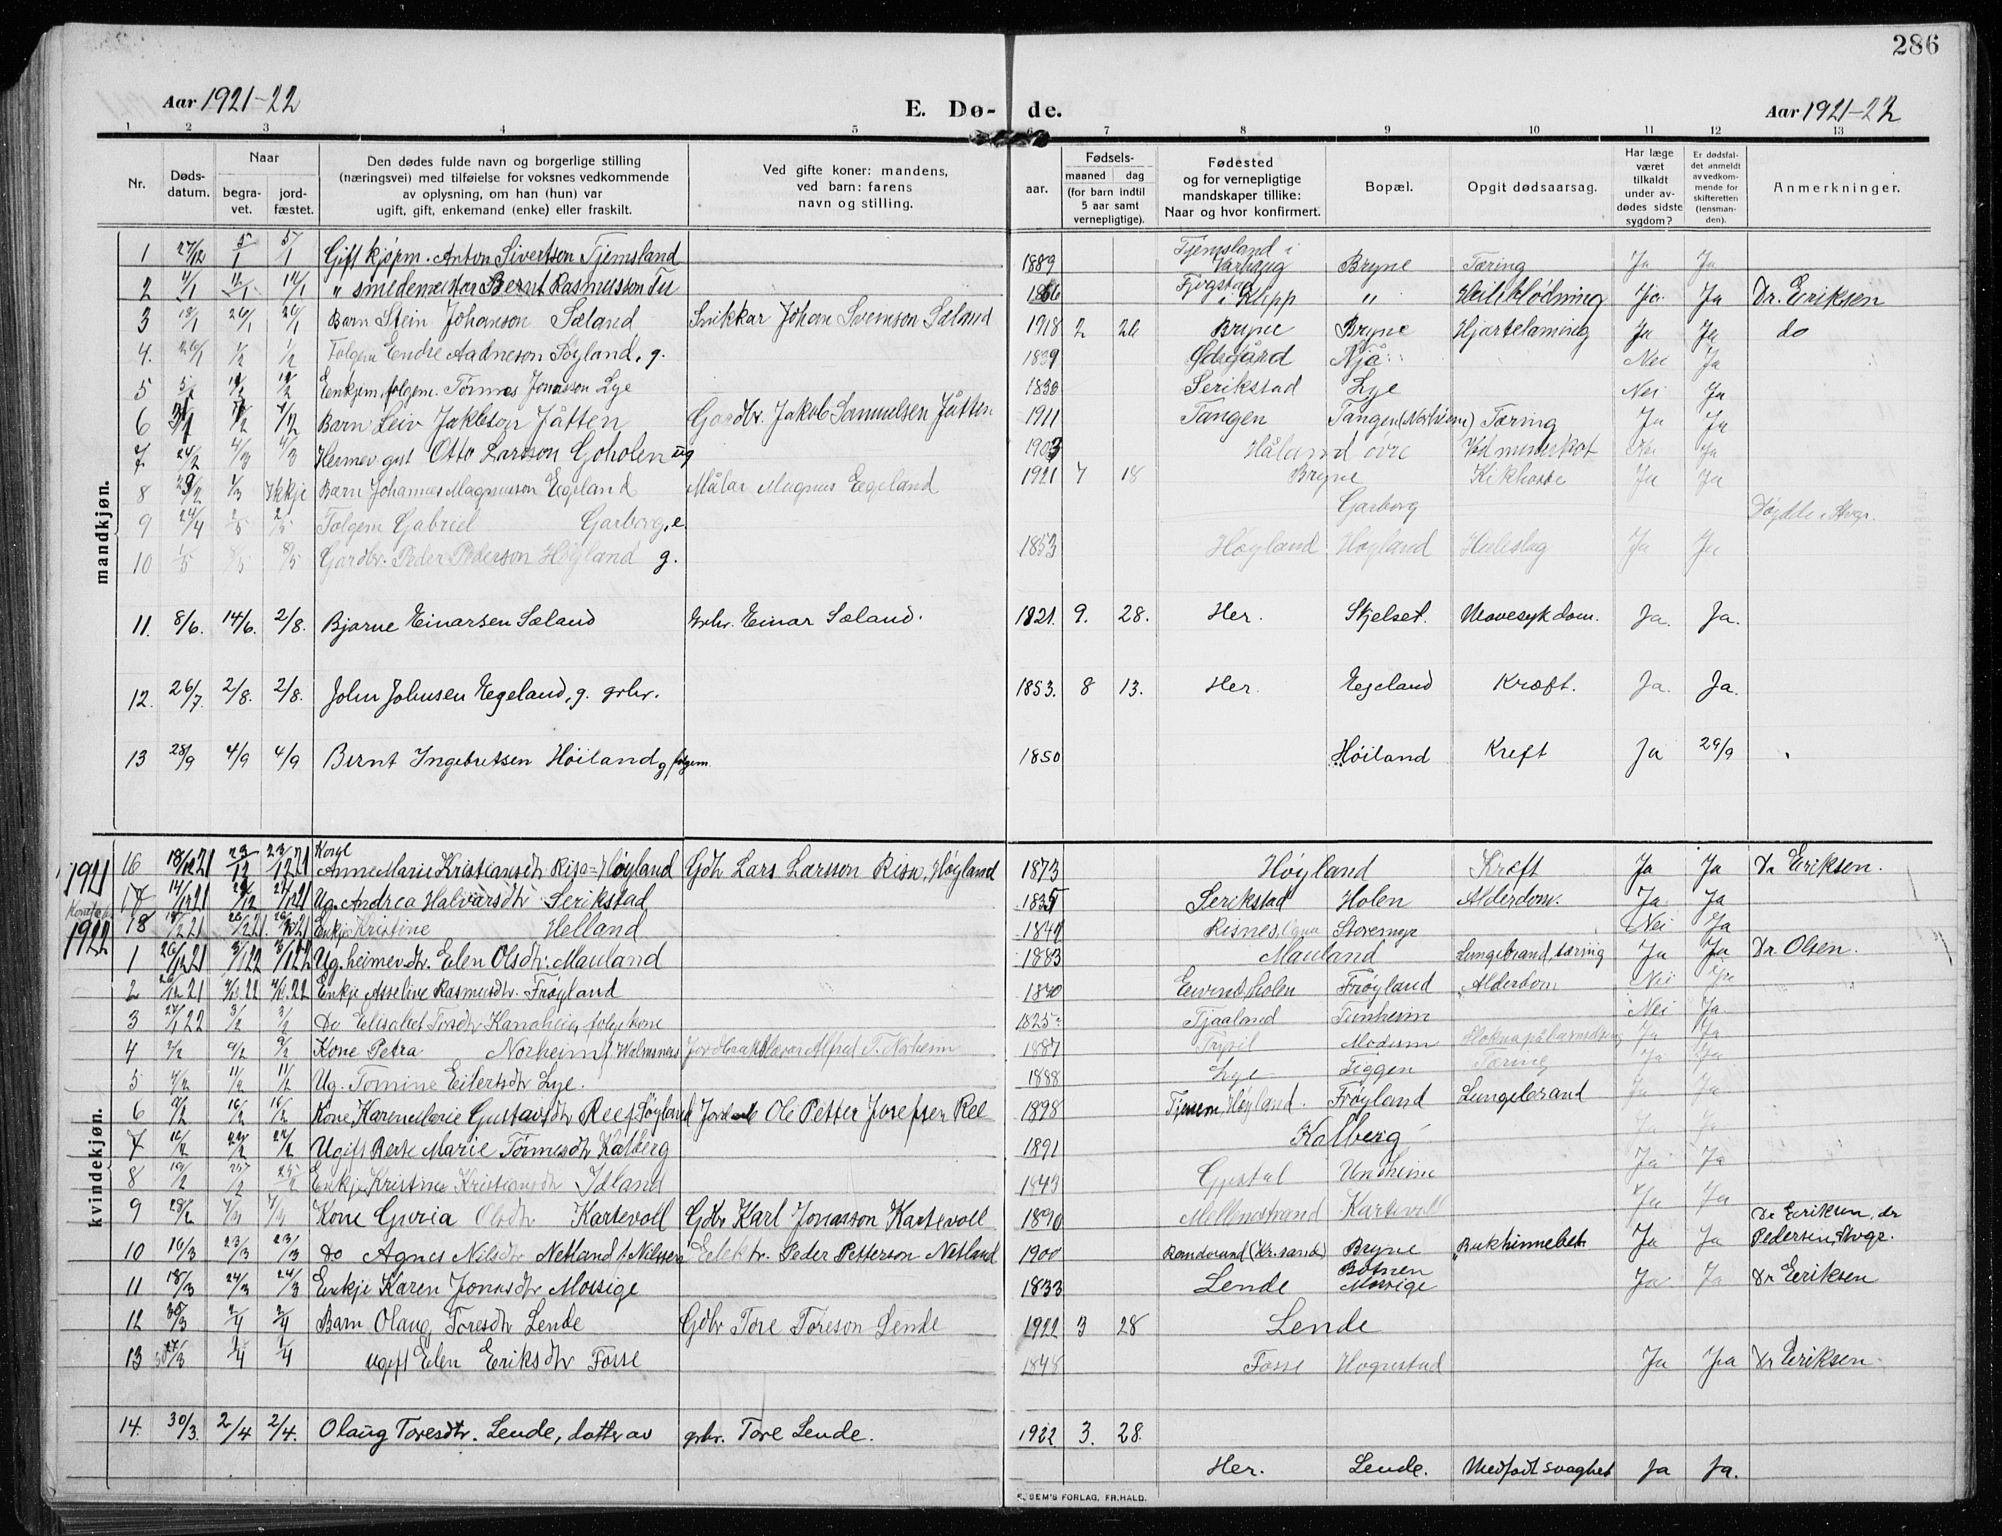 286
Aar 1921-22 E. Dø- de. Aar 1921-22
1 2 3 4 5 6 7 8 9 10 11 12 13
Nr. Døds-datum. Naar begra-vet. jord-fæstet. Den dødes fulde navn og borgerlige stilling (næringsvei) med tilføielse for voksnes vedkommende av oplysning, om han (hun) var ugift, gift, enkemand (enke) eller fraskilt. Ved gifte koner: mandens, ved barn: farens navn og stilling. aar. Fødsels- maaned dag (for barn indtil 5 aar samt vernepligtige). Fødested og for vernepligtige mandskaper tillike: Naar og hvor konfirmert. Bopæl. Opgit dødsaarsag. Har læge været tilkaldt under av-dødes sidste sygdom? Er dødsfal-det anmeldt av vedkom-mende for skifteretten (lensman-den). Anmerkninger.
mandkjøn.
1 27/12 5/1 5/1 Gift kjøpm. Anton Sivertson Tjemsland 1889 Tjemsland i Varhaug Bryne Tæring Ja Ja
2 4/1 12/1 12/1 " smedemestar Bernt Rasmusson Tu 1866 i Klepp " Heileblødning Ja Ja Dr. Eriksen
3 18/1 26/1 26/1 Barn Stein Johanson Sæland Snikkar Johan Svenson Sæland 1918 2 26 Bryne Bryne Hjartelaming Ja Ja do
4. 26/1 1/2 1/2 Folgem Endre Aadneson Søyland, g. 1839 Ødegård Njå Nei Ja
5 5/2 12/2 12/2 Enkjem. folgem. Tønnes Jonasson Lye 1838 Serikstad Lye Nei Ja
6 31/1 7/2 7/2 Barn Leiv Jakobson Jåtten Gardbr. Jakob Samuelsen Jåtten 1911 Tangen Tangen (Norheim) Tæring Ja Ja
7 24/2 4/3 4/3 Heimev. gut Otto Larsson Goholen ug 1903 Håland øvre Nei Ja
8 7/3 Ikkje Barn Johannes Magnusson Eegeland Målar Magnus Eegeland 1921 7 18 Bryne Kikhoste Ja Ja
9 24/4 2/5 2/5 Folgem Gabriel Garborg, e. Garborg
10 1/5 8/5 8/5 Gardbr. Peder Pederson Høyland g. 1853 Høyland Høyland Heileslag Ja Ja
11. 8/6. 14/6. 2/8. Bjarne Einarsen Sæland grbr. Einar Sæland. 1921. 9. 28. Her. Skjelset. Mavesykdom. Ja. Ja.
12. 26/7. 2/8. 2/8. John Johnsen Egeland, g. grbr. 1853. 8 13. Her. Egeland Kræft. Ja. Ja.
13 28/9 4/9 4/9 Bernt Ingebretsen Høiland g. folgem 1850 Høiland Kreft Ja 29/9
kvindekjøn.
1921
16 18/12 21 23/12 23/12 21 Kone Anne Marie Kristiansdtr Risa = Høyland Gdb Lars Larsson Risa, Høyland 1873 Høyland Kræft Ja Ja Dr Eriksen.
17 14/12 21 21/12 21/12 21 Ug. Andrea Halvarsdtr Serikstad 1835 Serikstad Holen Alderdom. Ja Ja
18 Enkje Kristine Helland 1847 Risnes, Storemyr Nei Ja
1922
1 26/12 21 3/1 22 3/1 22 Ug. heimev. dtr. Elen Olsdtr. Mauland 1883 Mauland Lungebrand, tæring Ja Ja Dr. Olsen.
2 Enkje Asseline Rasmusdtr. Frøyland 1840 Frøyland Alderdom Nei Ja
3 27/1 22 3/2 3/2 Do Elisabet Torsdtr folgekone 1825 Tjaaland Tunheim Nei Ja
4 2/2 9/2 9/2 Kone Petra Norheim Alfred T. Norheim 1887 Trysil Modum Ja Ja
5 4/2 11/2 11/2 Ug. Tomine Eilertsdtr Lye. 1888 Lye Tiggen Tæring Ja Ja
6 9/2 16/2 16/2 Kone Karen Marie Gustavsdtr Ree f. Søyland Ole Petter Josefsen Ree 1898 Høyland. Frøyland Lungebrand Ja Ja
7 16/2 22/2 22/2 Ugift Berte Marie Tønnesdtr Kalberg 1891 Kalberg Ja Ja
8 19/2 25/2 25/2 Enkje Kristine Kristiansdtr Idland 1843 Gystøl Undheim Ja Ja
9 28/2 7/3 7/3 Kone Guria Olsdtr Kartevoll Gdbr Karl Jonasson Kartevoll 1890 Mellomstrand Kartevoll Ja Ja
10 16/3 23/3 23/3 Do Agnes Nilsdtr Netland f. Nilssen Elektr. Peder Petterson Netland 1900 Randesund (Kr.sand) Bryne Bukhinnebet. Ja Ja Dr Eriksen, dr Pedersen, Stvgr.
11 18/3 24/3 24/3 Enkje Karen Jonasdtr Mossige 1833 Lende Botnen Mossige Ja Ja Dr Eriksen
12 30/3 2/4 2/4 Barn Olaug Toresdtr Lende Gdbr Tore Toreson Lende 1922 3 28 Lende
13 27/3 1/4 1/4 ugift Elen Eriksdtr Fosse 1848 Fosse Hognestad Ja Ja Dr Eriksen.
14. 30/3. 2/4 2/4. Olaug Toresdtr. Lende, datter av grbr. Tore Lende. 1922 3. 28.
Her. Lende. Medfødt svaghet Ja Ja.
SEM'S FORLAG, FR.HALD.